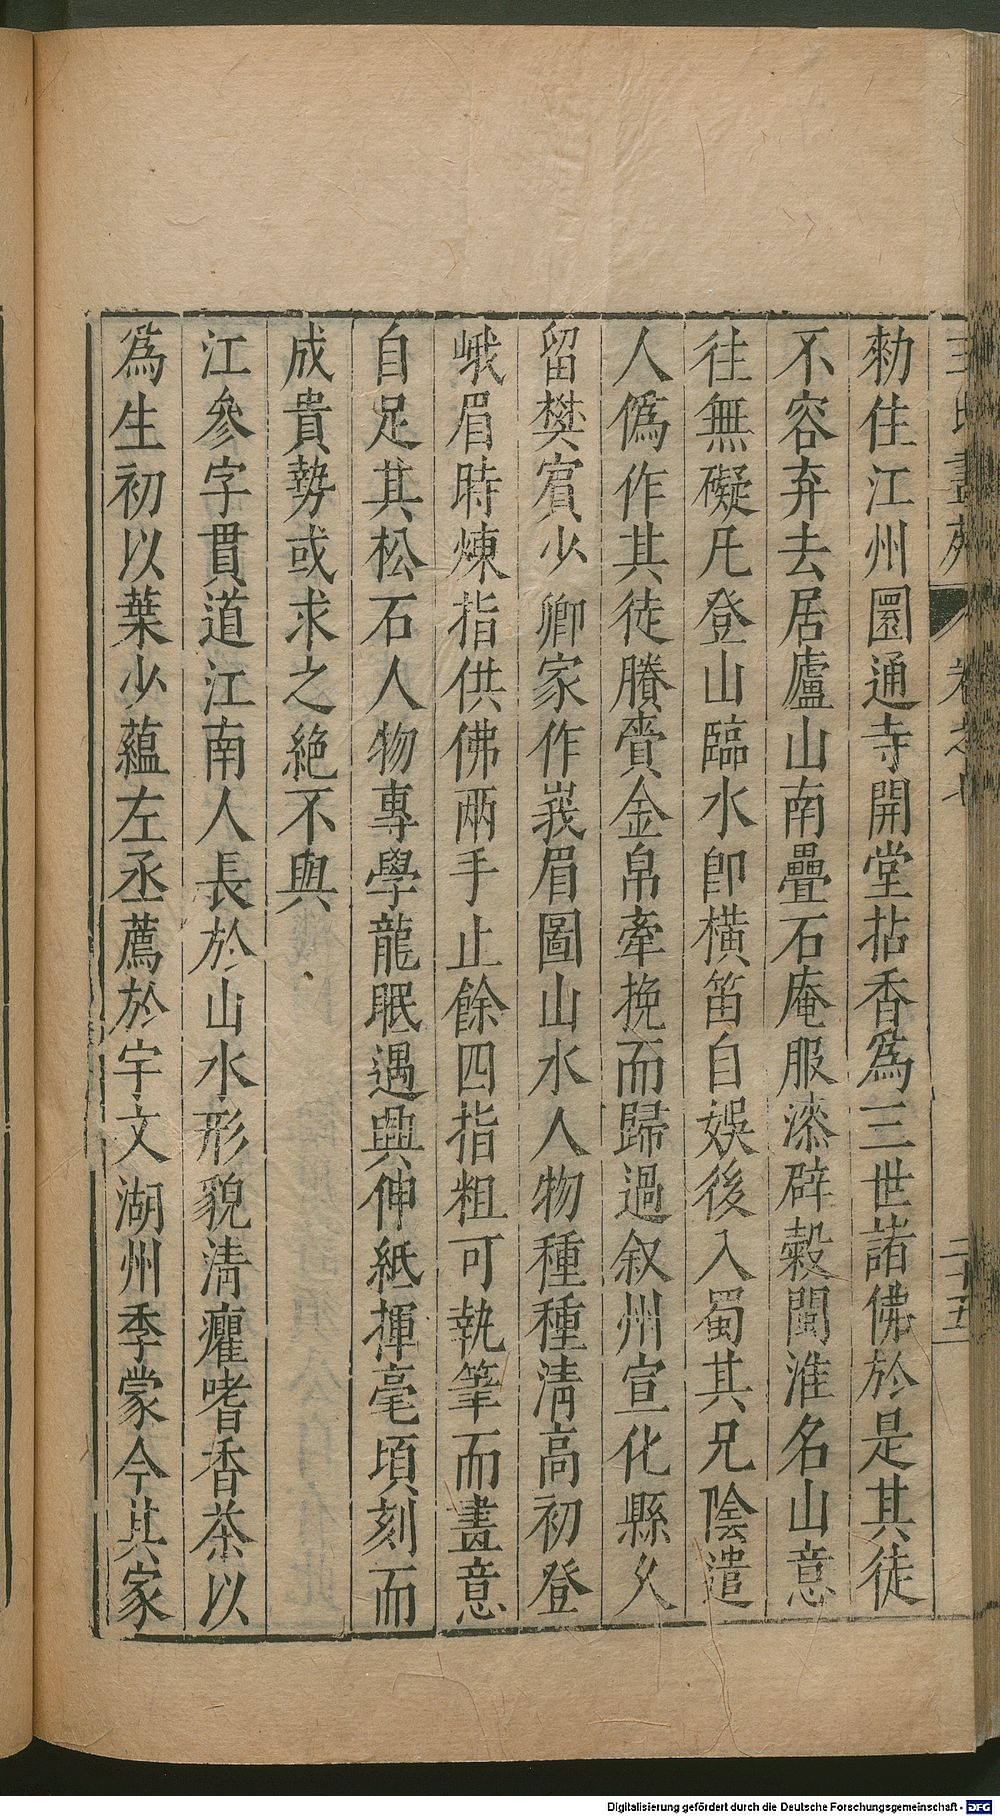 勑住江州圓通寺開堂拈香爲三世諸佛於是其徒
不容弃去居廬山南疊石庵服漆辟穀閩淮名山意
往無礙凡登山臨水卽橫笛自娛後入蜀其兄陰遣
人僞作其徒賸賫金帛牽挽而歸過叙州宣化縣久
留樊賔少卿家作峩眉圖山水人物種種淸高初登
峨眉時煉指供佛兩手止餘四指粗可執筆而畫意
自足其松石人物專學龍眠遇興伸紙揮毫頃刻而
成貴勢或求之絕不與
江參字貫道江南人長於山水形貌淸癯嗜香茶以
爲生初以葉少蘊左丞薦於宇文湖州季蒙今其家
Digitalisierung gefördert durch die Deutsche Forschungsgemeinschaft - DFG